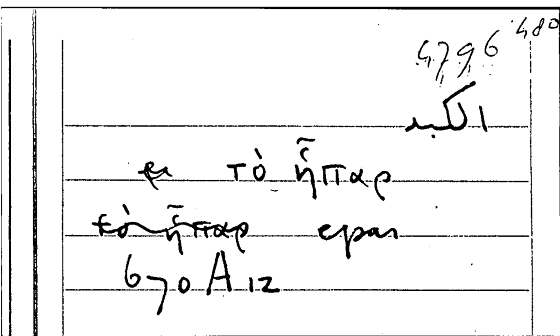 4796 480
الكبد
τὸ ἧπαρ
τὸ ἧπαρ
670 A 12